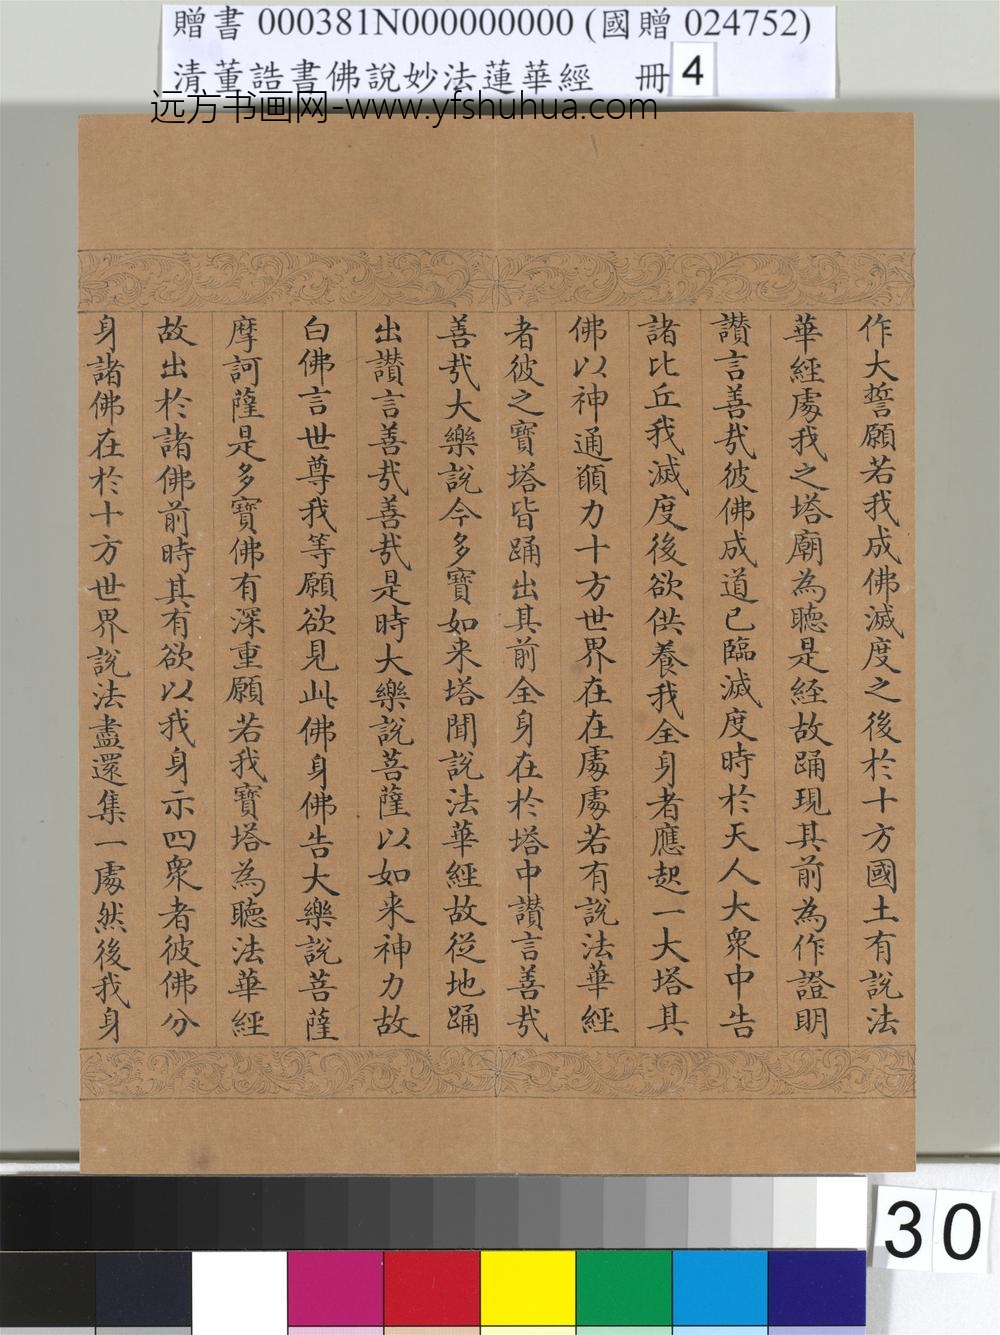 贈書 000381N000000000 (國贈 024752)
清董誥書佛說妙法蓮華經 冊 4
远方书画网-www.yfshuhua.com
作大誓願若我成佛滅度之後於十方國土有說法
華經處我之塔廟為聽是経故踊現其前為作證明
讃言善㢤彼佛成道已臨滅度時於天人大眾中告
諸比丘我滅度後欲供養我全身者應起一大塔其
佛以神通願力十方世界在在處處若有說法華經
者彼之寶塔皆踊出其前全身在於塔中讃言善㢤
善㢤大樂說今多寶如来塔聞說法華經故從地踊
出讃言善㢤善㢤是時大樂說菩薩以如来神力故
白佛言世尊我等願欲見此佛身佛告大樂說菩薩
摩訶薩是多寶佛有深重願若我寶塔為聽法華經
故出於諸佛前時其有欲以我身示四眾者彼佛分
身諸佛在於十方世界說法盡還集一處然後我身
30